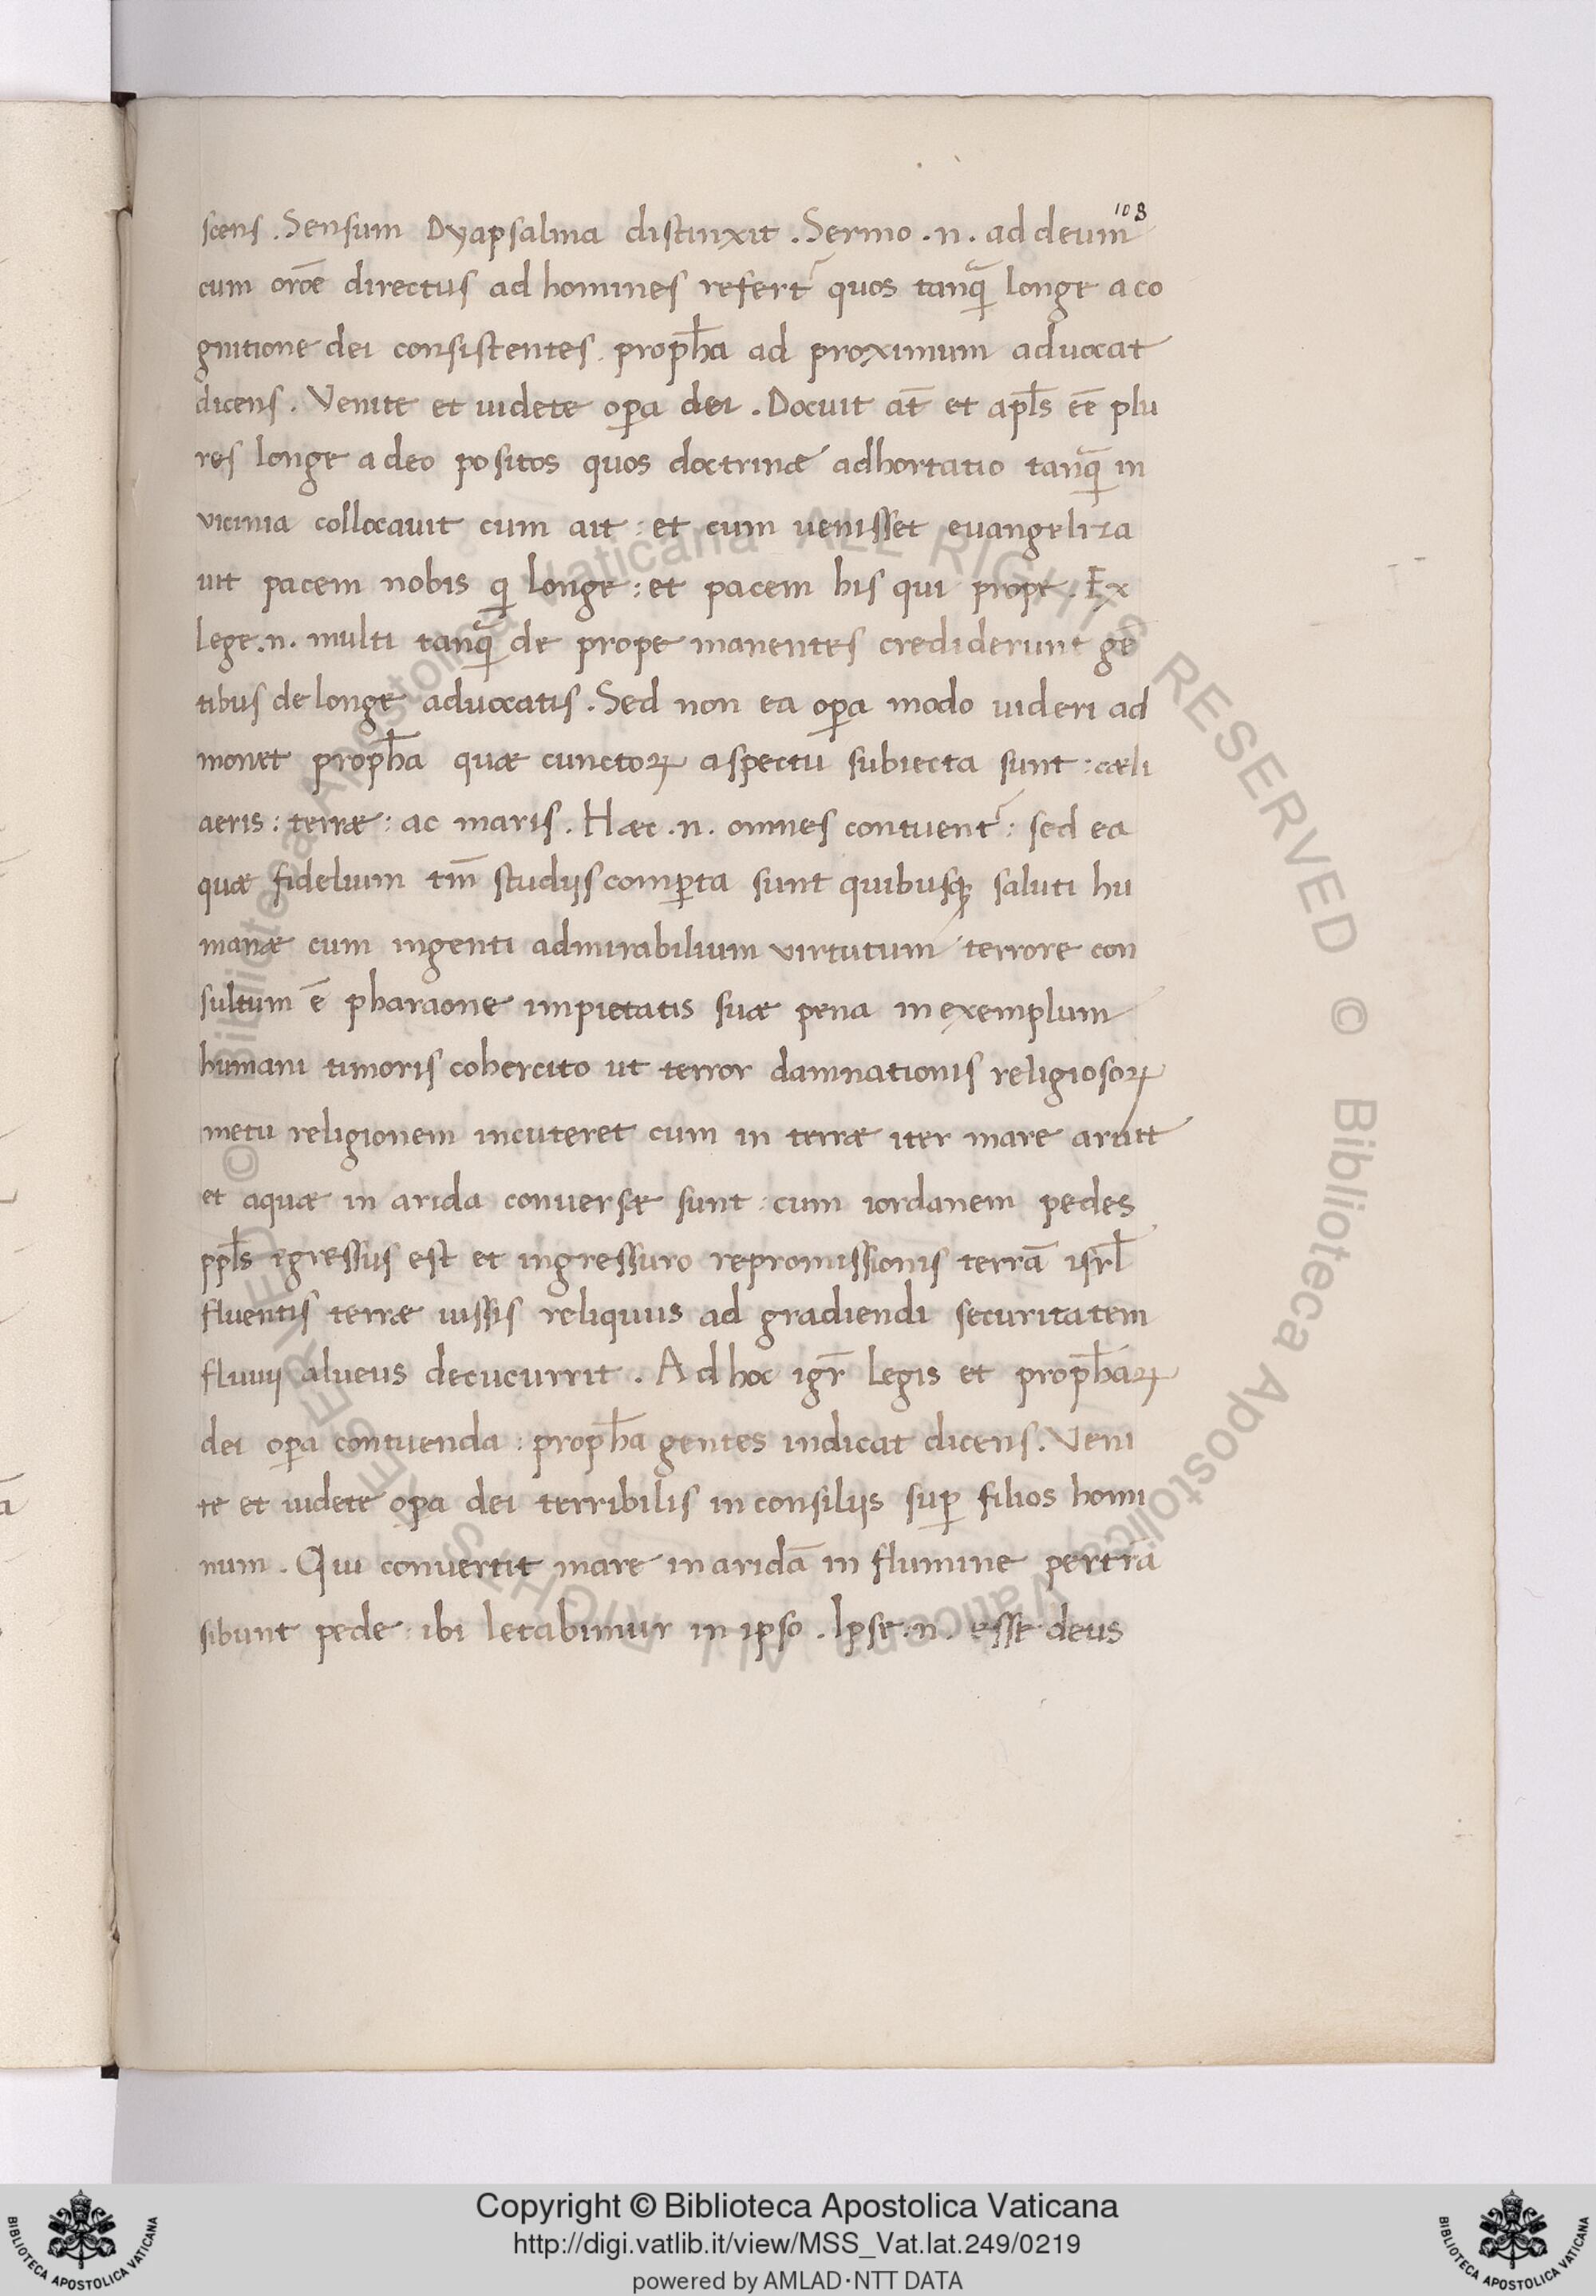 108
scens . Sensum Dyapsalma distinxit . Sermo .n. ad deum
cum orōe directus ad homines refert᷑ quos tanq̄ longe a co
gnitione dei consistentes . prop̄ha ad proximum aduocat
dicens . Venite et uidete oꝑa dei . Docuit aūt et apl̄s eē plu
res longe a deo positos quos doctrinæ adhortatio tanq̄ in
vicinia collocauit cum ait : et cum uenisset euangeliza
uit pacem nobis q longe : et pacem his qui prope . Ex
lege .n. multi tanq̄ de prope manentes crediderunt gē
tibus de longe aduocatis . Sed non ea oꝑa modo uideri ad
monet prop̄ha quæ cunctoꝝ aspectu subiecta sunt : cæli
aeris : terræ : ac maris . Hæc .n. omnes contuent᷑ : sed ea
quæ fidelium tm̄ studijs comꝑta sunt quibusqꝫ saluti hu
manæ cum ingenti admirabilium virtutum terrore con
sultum ē pharaone impietatis suæ pena in exemplum
humani timoris cohercito ut terror damnationis religiosoꝝ
metu religionem incuteret cum in terræ iter mare aruit
et aquæ in arida conuersæ sunt : cum iordanem pedes
ppl̄s egressus est et ingressuro repromissionis terrā isrl̄
fluentis terræ iussis reliquus ad gradiendi securitatem
fluuij alueus decucurrit . Ad hoc igr̄ legis et prop̄haꝝ
dei oꝑa contuenda : prop̄ha gentes indicat dicens . Veni
te et uidete oꝑa dei terribilis in consilijs suꝑ filios homi
num . Qui conuertit mare in aridā in flumine pertrā
sibunt pede : ibi letabimur in ipso . Ipse .n. esse deus
Copyright © Biblioteca Apostolica Vaticana
http://digi.vatlib.it/view/MSS_Vat.lat.249/0219
powered by AMLAD·NTT DATA
BIBLIOTECA APOSTOLICA VATICANA
BIBLIOTECA APOSTOLICA VATICANA